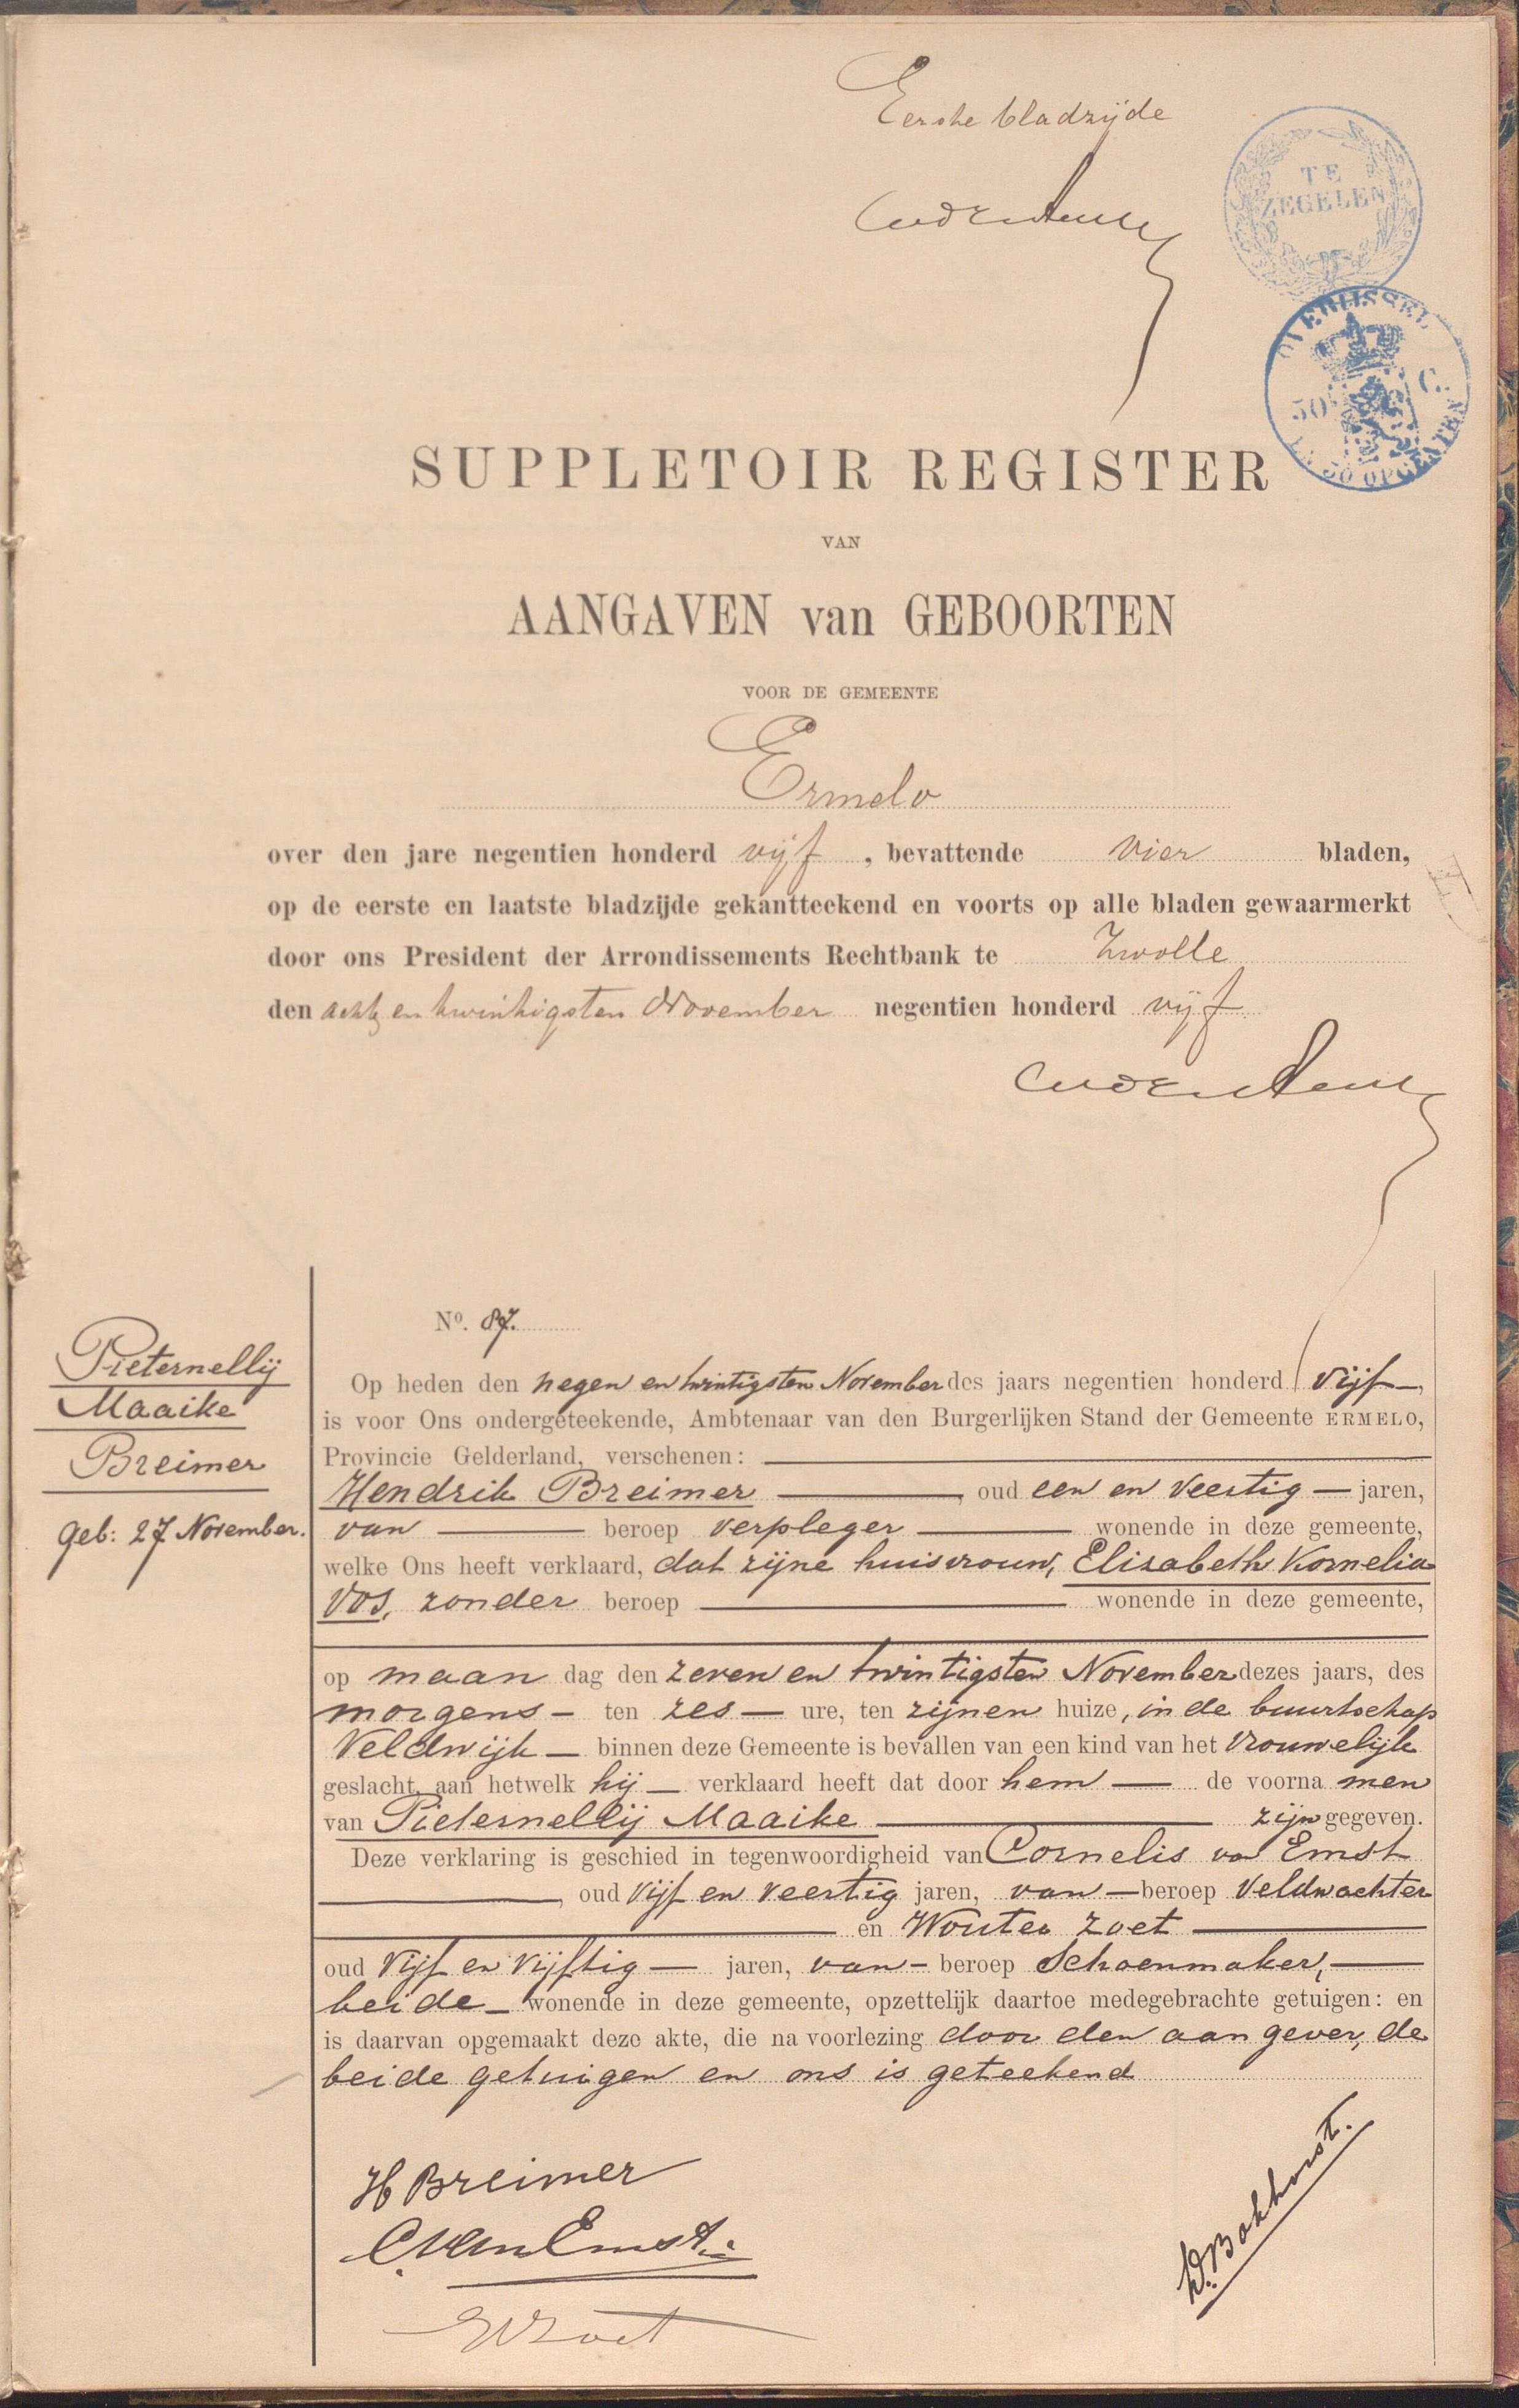 Eerste bladzijde
TE
ZEGELEN
OVERIJSSEL
50 C.
EN 50 OPCENTEN
SUPPLETOIR REGISTER
VAN
AANGAVEN van GEBOORTEN
VOOR DE GEMEENTE
Ermelo
over den jare negentien honderd vijf , bevattende vier bladen,
op de eerste en laatste bladzijde gekantteekend en voorts op alle bladen gewaarmerkt
door ons President der Arrondissements Rechtbank te Zwolle
den acht en twintigsten November negentien honderd vijf
Pieternellij
Maaike
Breimer
geb: 27 November.
No. 87.
Op heden den negen en twintigsten November des jaars negentien honderd vijf —,
is voor Ons ondergeteekende, Ambtenaar van den Burgerlijken Stand der Gemeente ERMELO,
Provincie Gelderland, verschenen: —
Hendrik Breimer —, oud een en veertig — jaren,
van — beroep verpleger — wonende in deze gemeente,
welke Ons heeft verklaard, dat zijne huisvrouw, Elizabeth Kornelia
Vos, zonder beroep — wonende in deze gemeente,
op maan dag den zeven en twintigsten November dezes jaars, des
morgens — ten zes — ure, ten zijnen huize, in de buurtschap
Veldwijk — binnen deze Gemeente is bevallen van een kind van het vrouwelijk
geslacht, aan hetwelk hij — verklaard heeft dat door hem — de voorna men
van Pieternellij Maaike — zijn gegeven.
Deze verklaring is geschied in tegenwoordigheid van Cornelis van Emst
—, oud vijf en veertig jaren, van — beroep veldwachter
— en Wouter Zoet —
oud vijf en vijftig — jaren, van — beroep schoenmaker, —
beide — wonende in deze gemeente, opzettelijk daartoe medegebrachte getuigen: en
is daarvan opgemaakt deze akte, die na voorlezing door den aangever, de
beide getuigen en ons is geteekend
H Breimer
C. van Emst
W Zoet
W. Bakhorst.